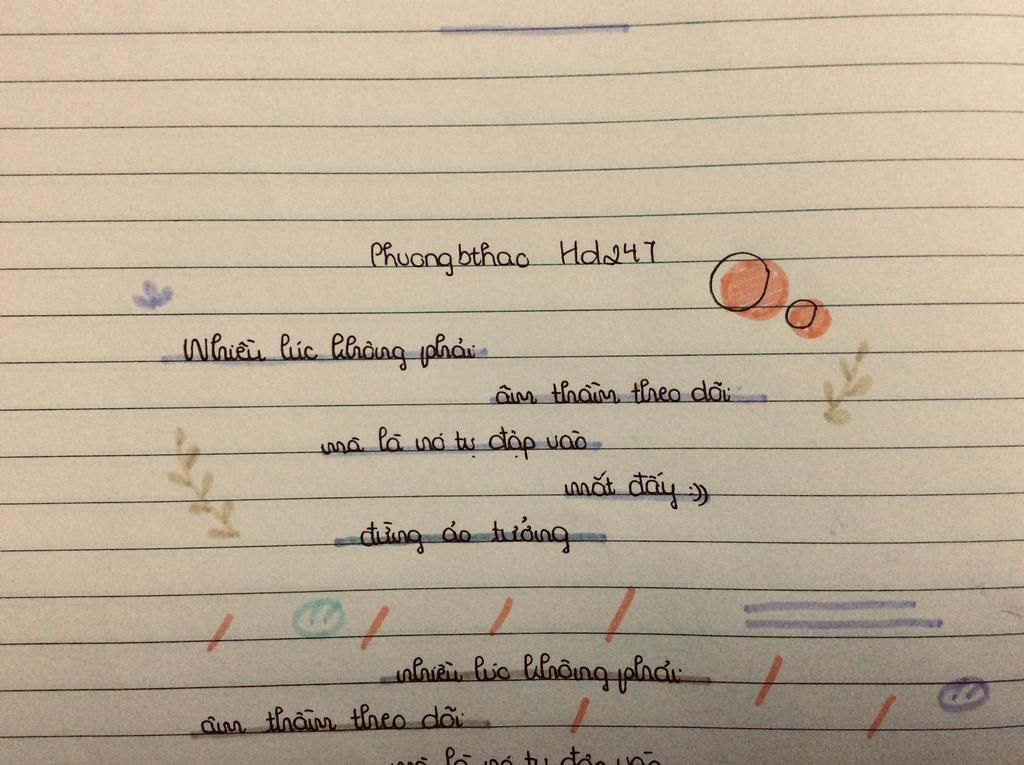 Phuongbthao Hd247
Nhiều lúc không phải
âm thầm theo dõi
mà là nó tự đập vào
mắt đấy :))
đừng ảo tưởng
nhiều lúc không phải
âm thầm theo dõi
mà là nó tự đập vào